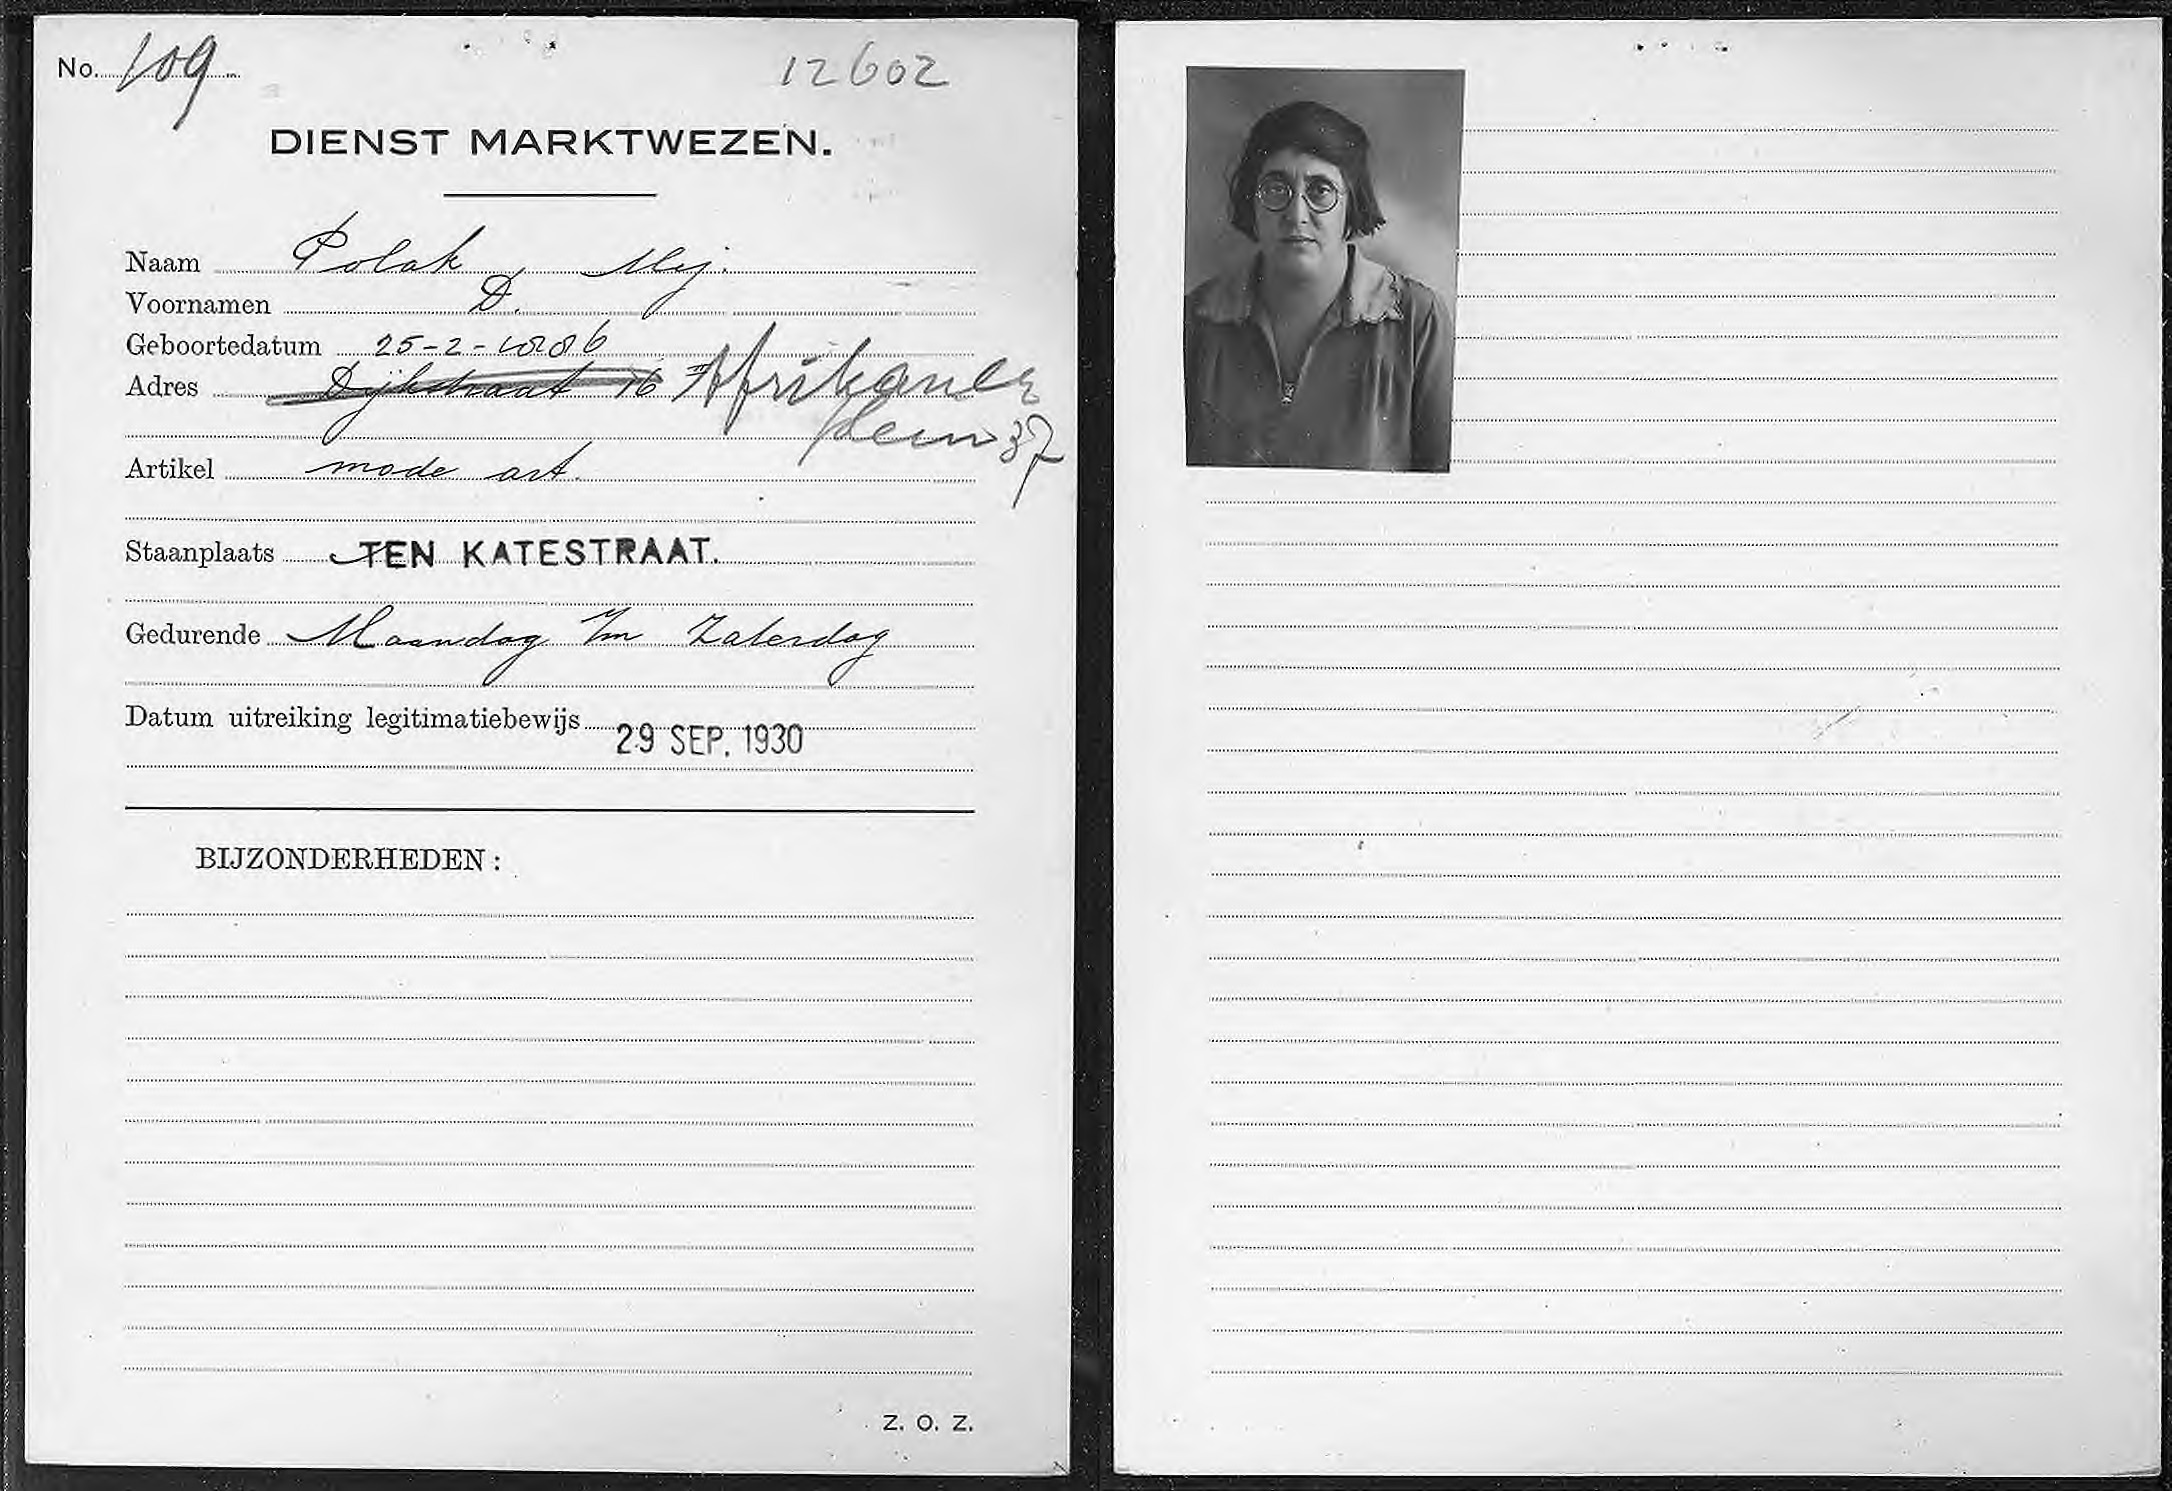 No. 109
12602
DIENST MARKTWEZEN.
Naam Polak, Mej.
Voornamen D.
Geboortedatum 25-2-1886
Adres Dijkstraat 16 Afrikaner
plein 37
Artikel mode art.
Staanplaats TEN KATESTRAAT.
Gedurende Maandag t/m Zaterdag
Datum uitreiking legitimatiebewijs 29 SEP. 1930
BIJZONDERHEDEN:
Z. O. Z.